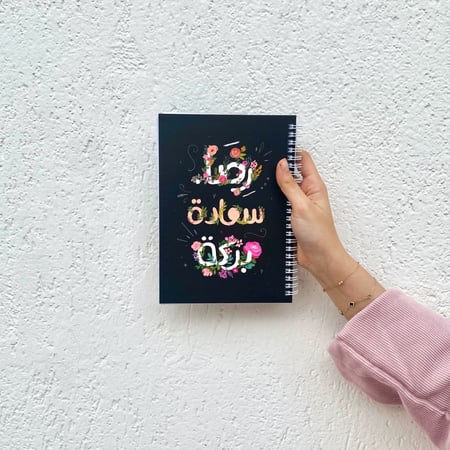 رضاً
سعادة
بركة